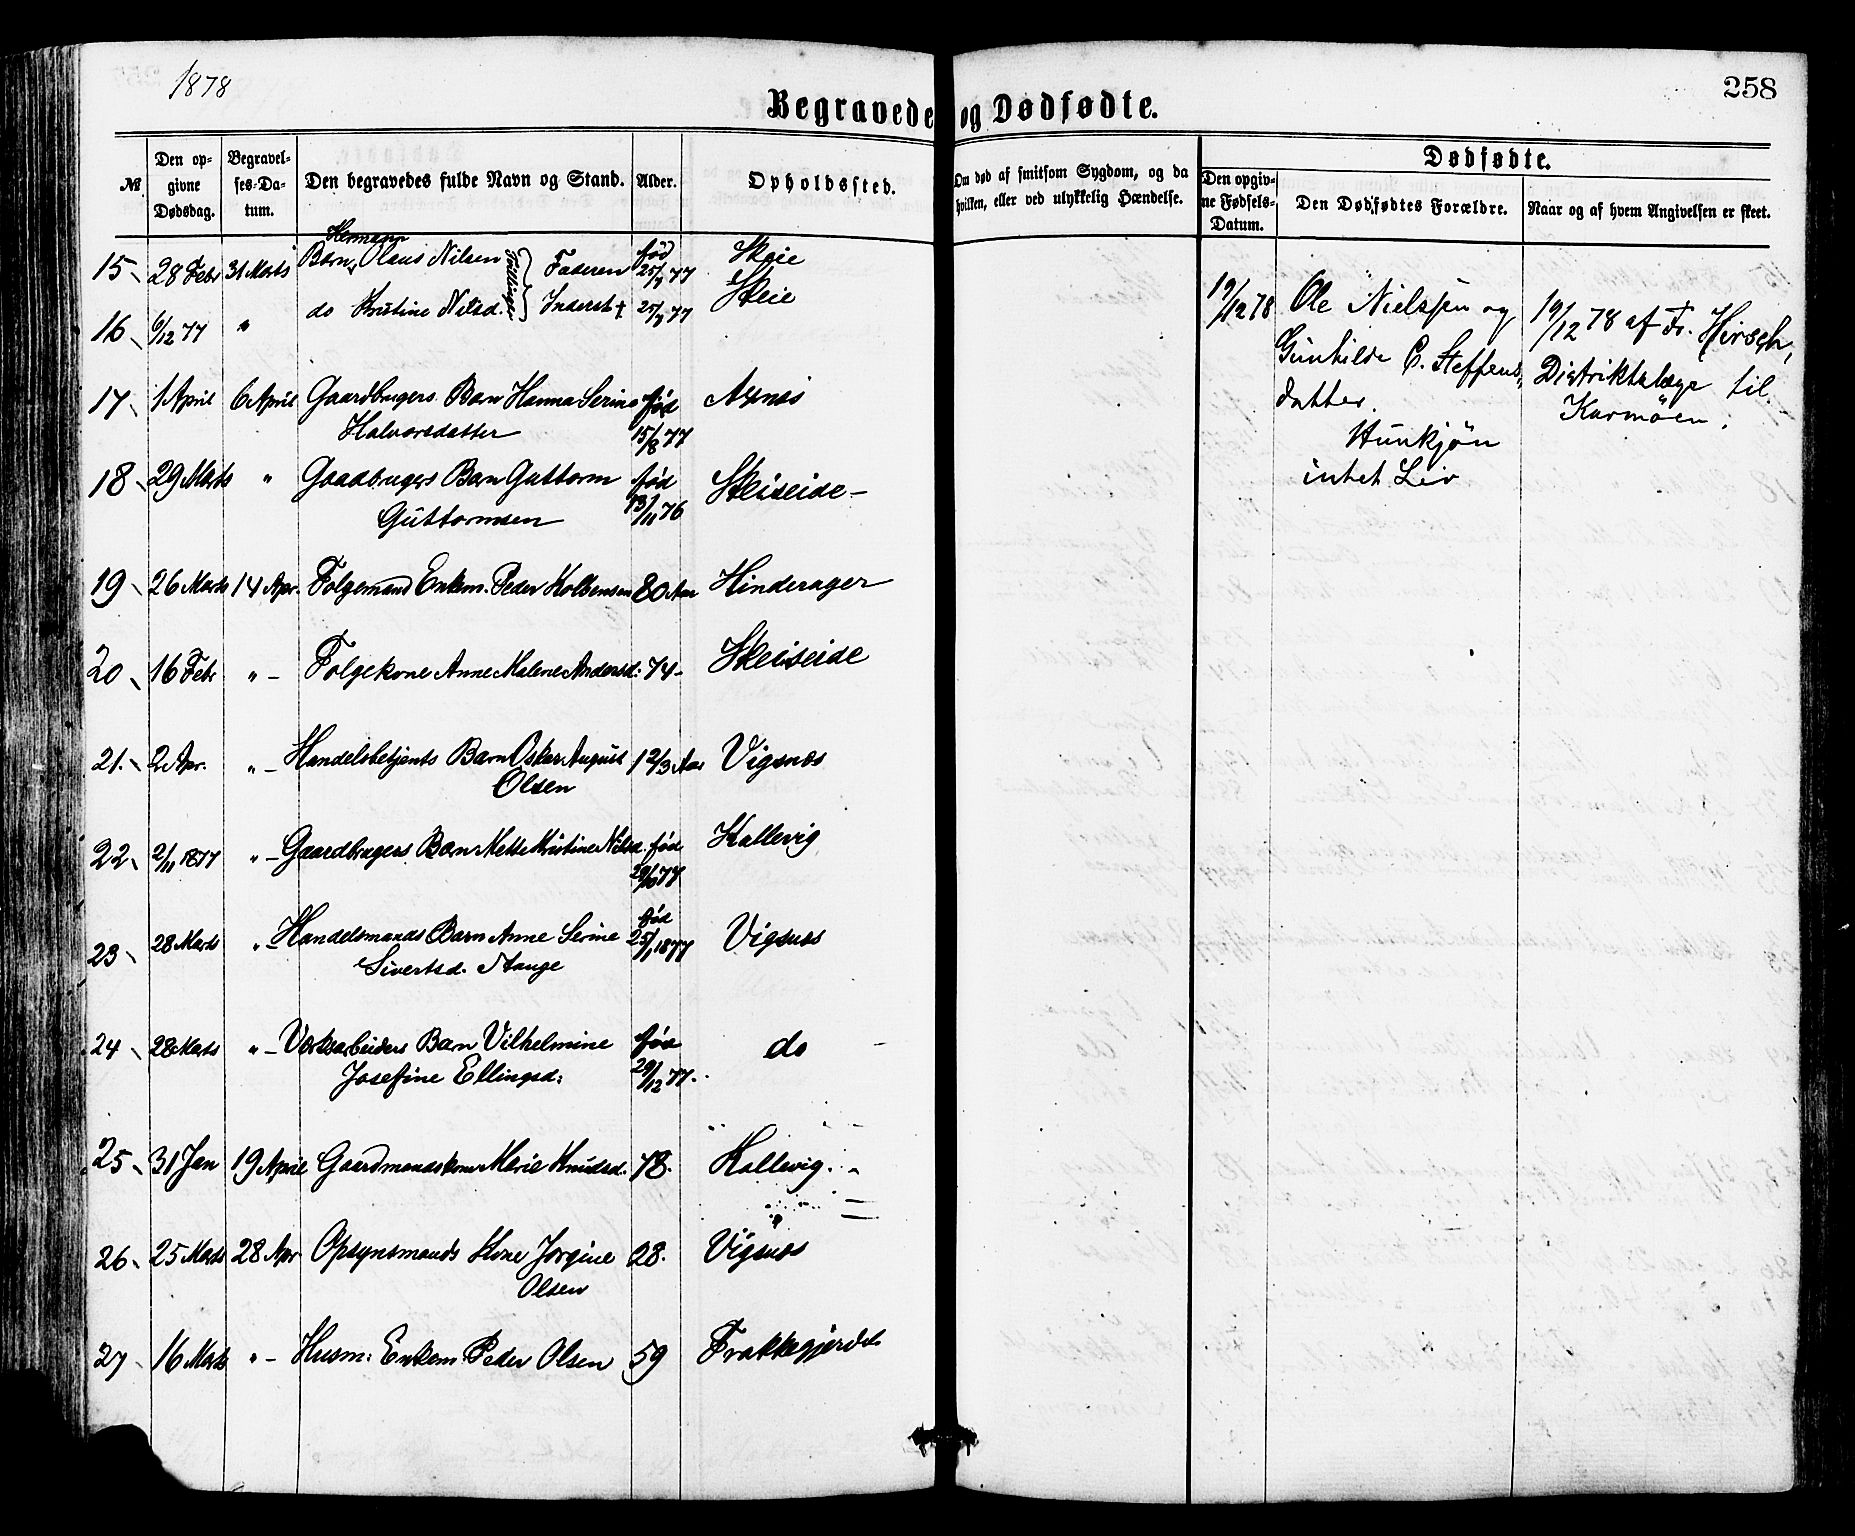 1878
258
Begravede og Dødfødte.
№.
Den op-
givne
Dødsdag.
Begravel-
ses-Da-
tum.
Den begravedes fulde Navn og Stand.
Alder.
Opholdssted.
Om død af smitsom Sygdom, og da
hvilken, eller ved ulykkelig Hændelse.
Dødfødte.
Den opgiv-
ne Fødsels-
Datum.
Den Dødfødtes Forældre.
Naar og af hvem Angivelsen er skeet.
Hermann
15 28 Febr 31 Marts Barn Olaus Nilsen Tvillinger Faderen fød 25/7 77 Skeie
16 6/12 77 " do Kristine Nilsd. Inderst + 25/7 77 Skeie
17 1 April 6 April Gaardbrugers Barn Hanna Serine fød Axnæs
Halvorsdatter 15/8 77
18 29 Marts " Gaadbrugers Barn Guttorm fød Skeiseide
Guttormsen 13/11 76
19 26 Marts 14 Apr. Folgemand Enkem. Peder Kolbensen 80 Aar Hinderager
20 16 Febr " Folgekone Anne Malene Andersd: 74 - Skeiseide
21. 2 Apr. " Handelsbetjents Barn Oskar August 1 2/3 Aar Vigsnæs
Olsen
22 2/11 1877 " Gaardbrugers Barn Mette Kristine Nilsd. fød Kallevig
29/10 77
23 28 Marts " Handelsmands Barn Anne Serine fød 25/1 1877 Vigsnæs
Sivertsd. Stange
24 28 Marts " Værksarbeiders Barn Vilhelmine fød do
Josefine Ellingsd: 29/12 77.
25 31 Jan 19 April Gaardmandskone Marie Knudsd. 78. Kallevig.
26 25 Marts 28 Apr Opsynsmands Kone Jorgine 28. Vigsnæs
Olsen
27 16 Marts " Husm: Enkem. Peder Olsen 59 Frakkegjerdet
19/12 78
Ole Nielssen og
Gunhilde C. Steffens
datter.
Hunkjøn
intet Liv
19/12 78 af Fr. Hirsch,
Distriktslæge til
Karmøen.